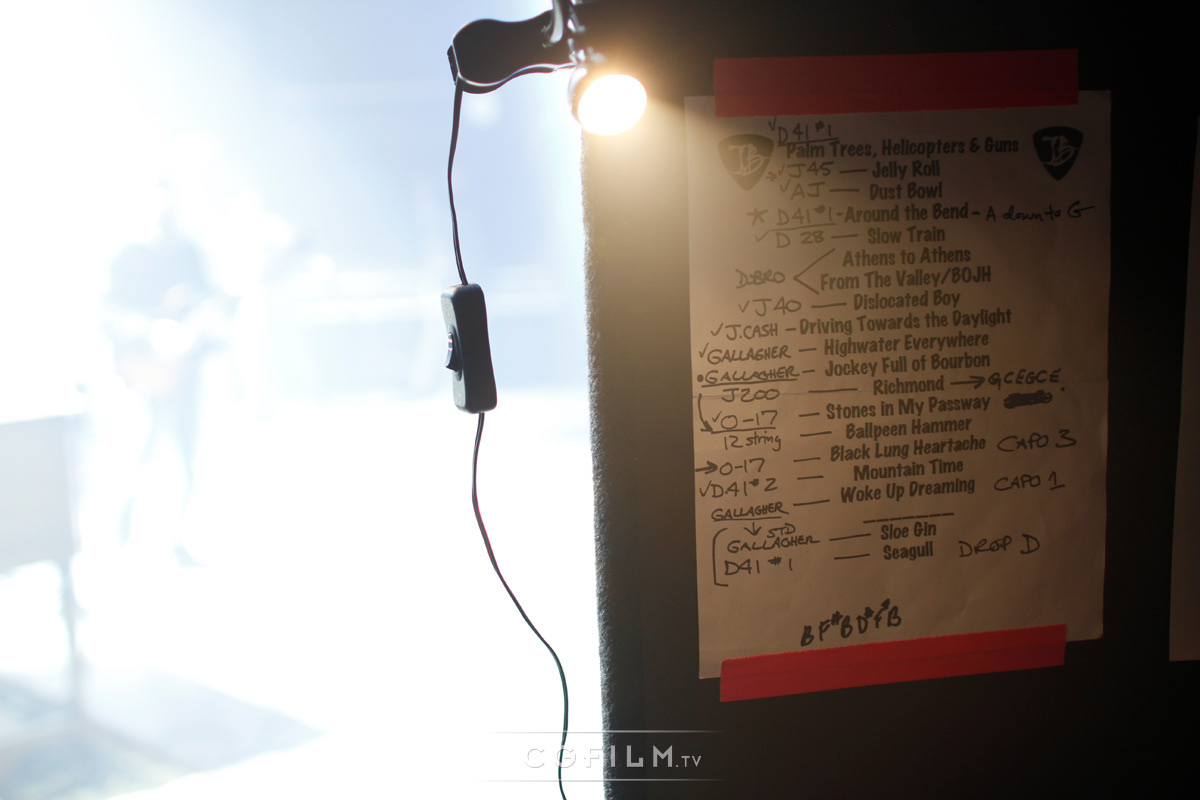 ✓D41 #1
JB Palm Trees, Helicopters & Guns JB
*✓J45 — Jelly Roll
✓AJ — Dust Bowl
* D41 #1 - Around the Bend - A down to G
✓D 28 — Slow Train
Athens to Athens
DOBRO < From The Valley/BOJH
✓J40 — Dislocated Boy
✓J.CASH — Driving Towards the Daylight
✓GALLAGHER — Highwater Everywhere
•GALLAGHER — Jockey Full of Bourbon
J200 — Richmond → GCEGCE.
✓O-17 — Stones in My Passway
12 string — Ballpeen Hammer
→O-17 — Black Lung Heartache CAPO 3
✓D41 #2 — Mountain Time
GALLAGHER — Woke Up Dreaming CAPO 1
↓ STD
GALLAGHER — Sloe Gin
D41 #1 — Seagull DROP D
BF#BD#FB
CGFILM.TV